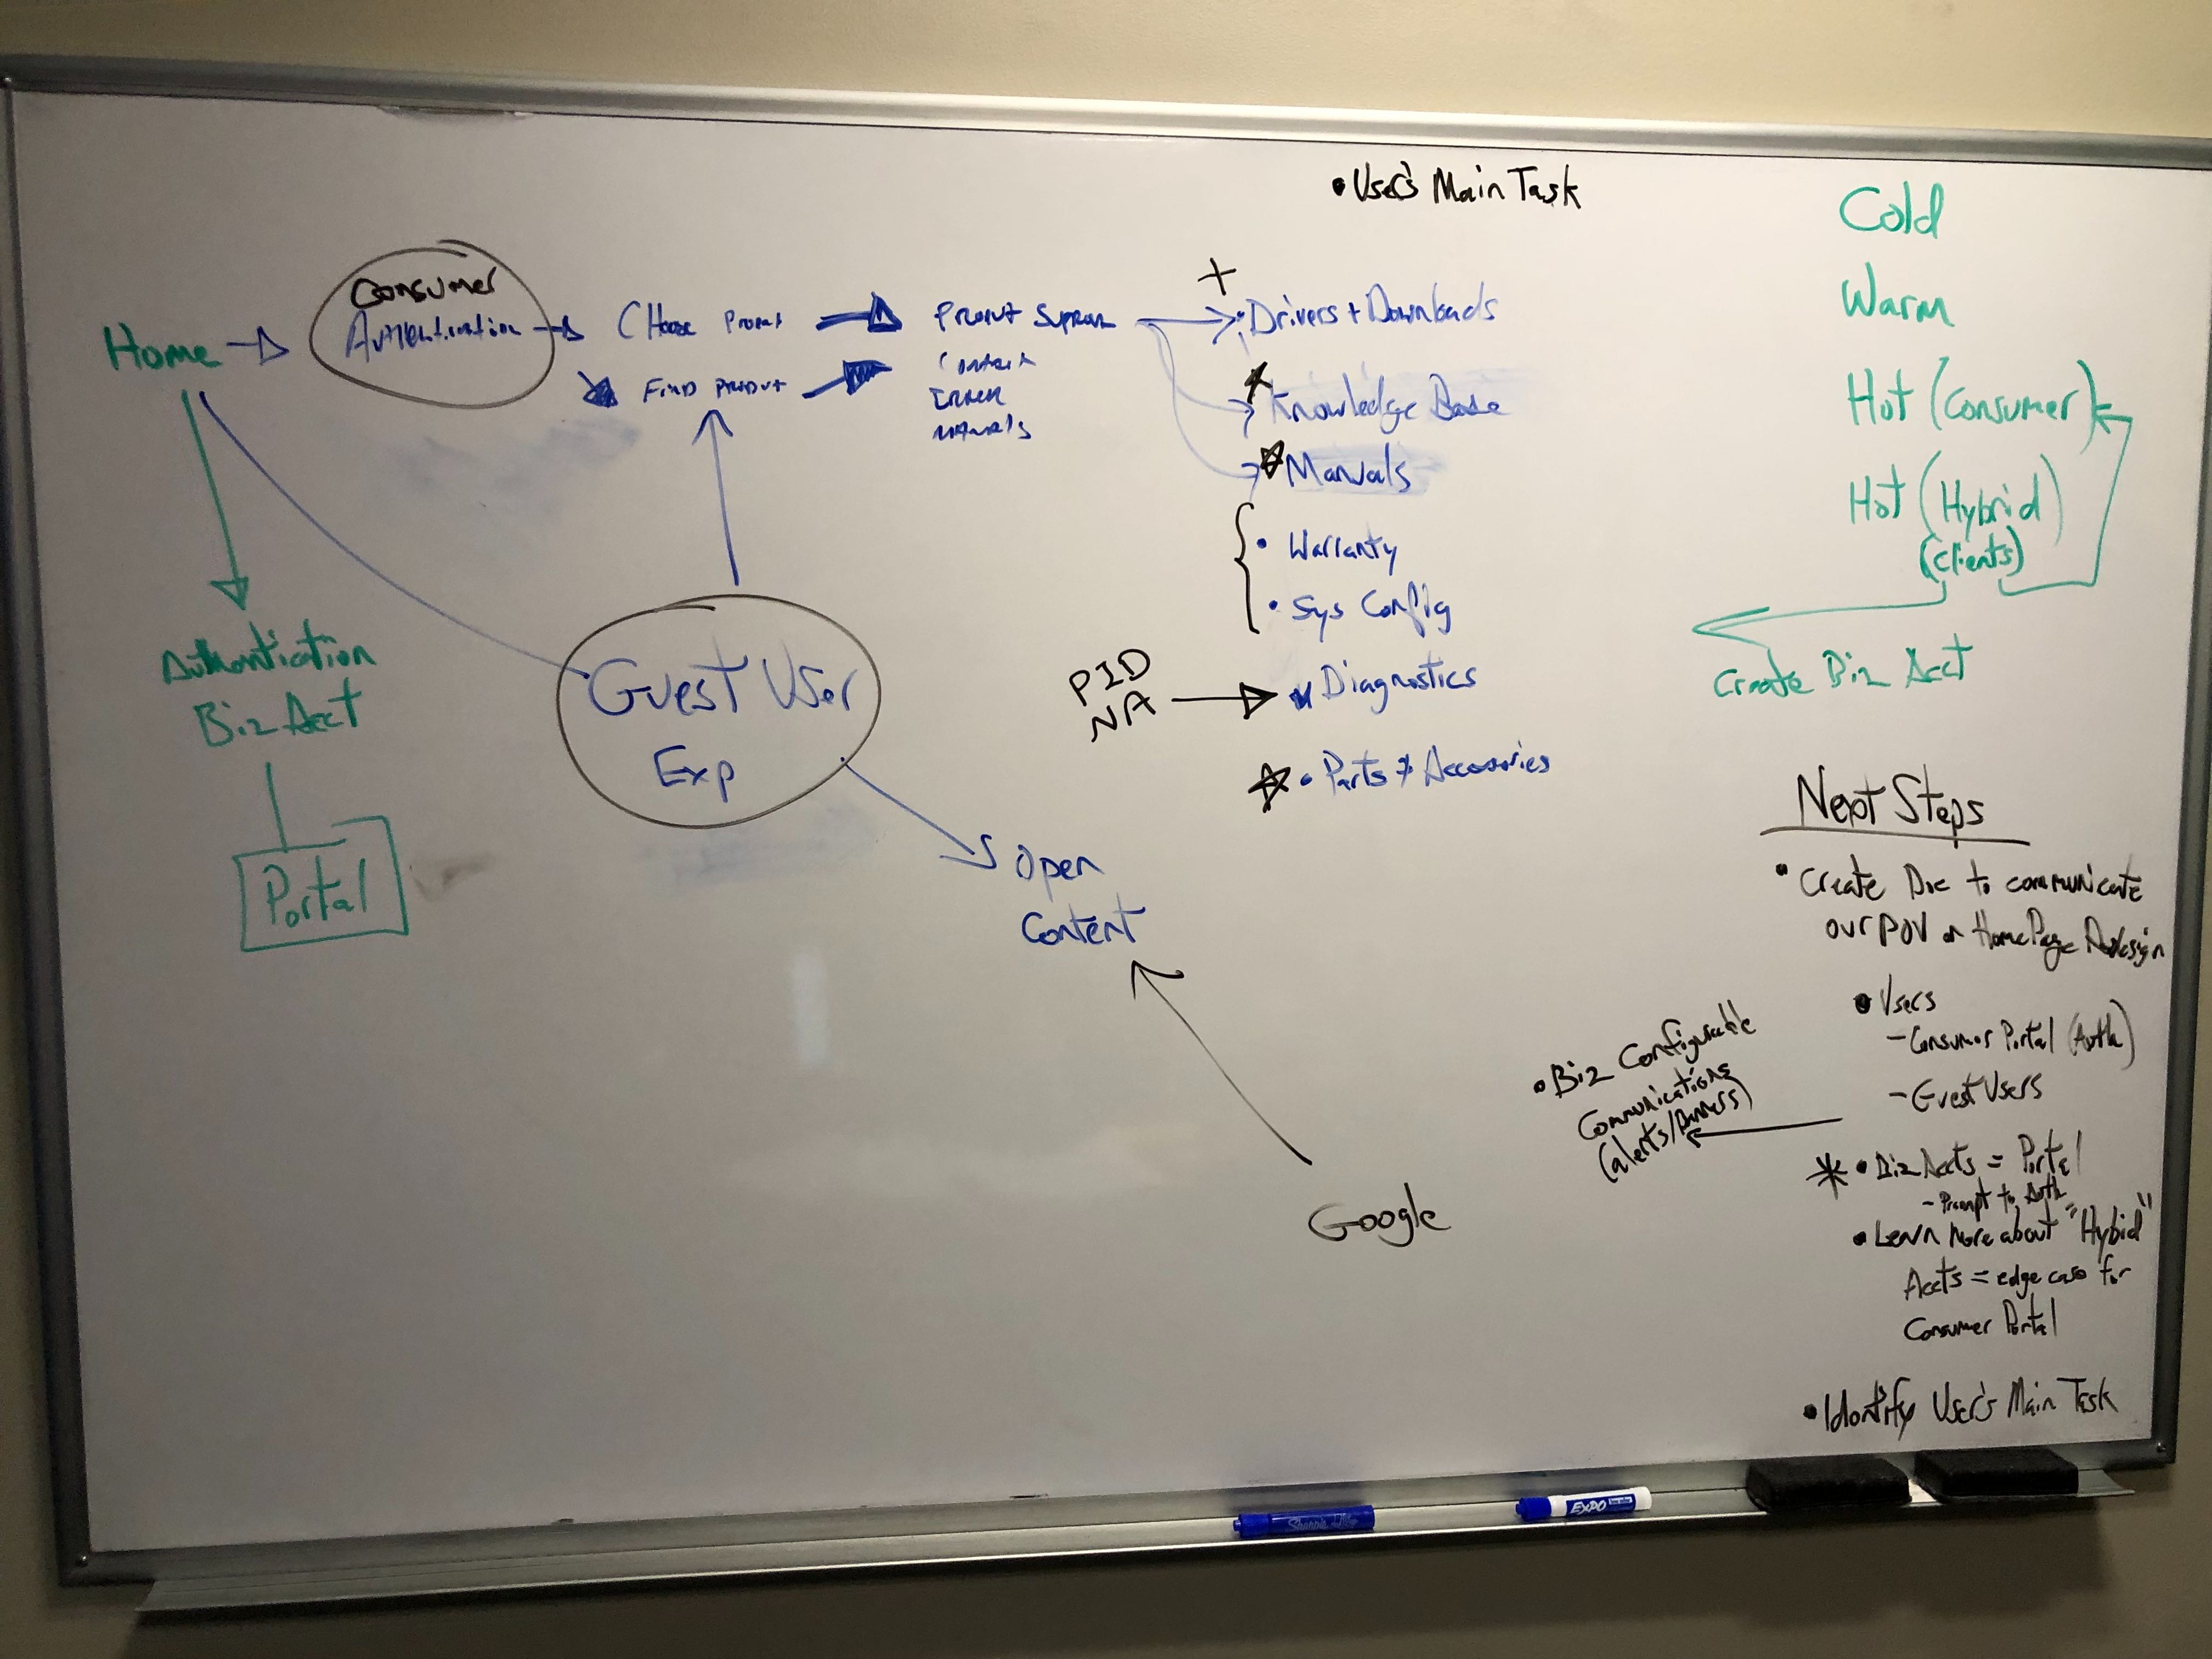 • User's Main Task
Home
Consumer
Authentication
Choose Product
Find Product
Product Support
Content
Manuals
• Drivers + Downloads
Knowledge Base
Manuals
• Warranty
• Sys Config
PID
NA
Diagnostics
• Parts & Accessories
Cold
Warm
Hot (Consumer)
Hot (Hybrid)
(Clients)
Create Biz Acct
Authentication
Biz Acct
Portal
Guest User
Exp
Open
Content
Google
Next Steps
• Create Doc to communicate
our POV on HomePage Redesign
• Users
- Consumer Portal (Auth)
- Guest Users
• Biz Configurable
Communications
(alerts/banners)
* • Biz Accts = Portal
- Prompt to Auth
• Learn More about "Hybid"
Accts = edge case for
Consumer Portal
• Identify User's Main Task
Sharpie
EXPO